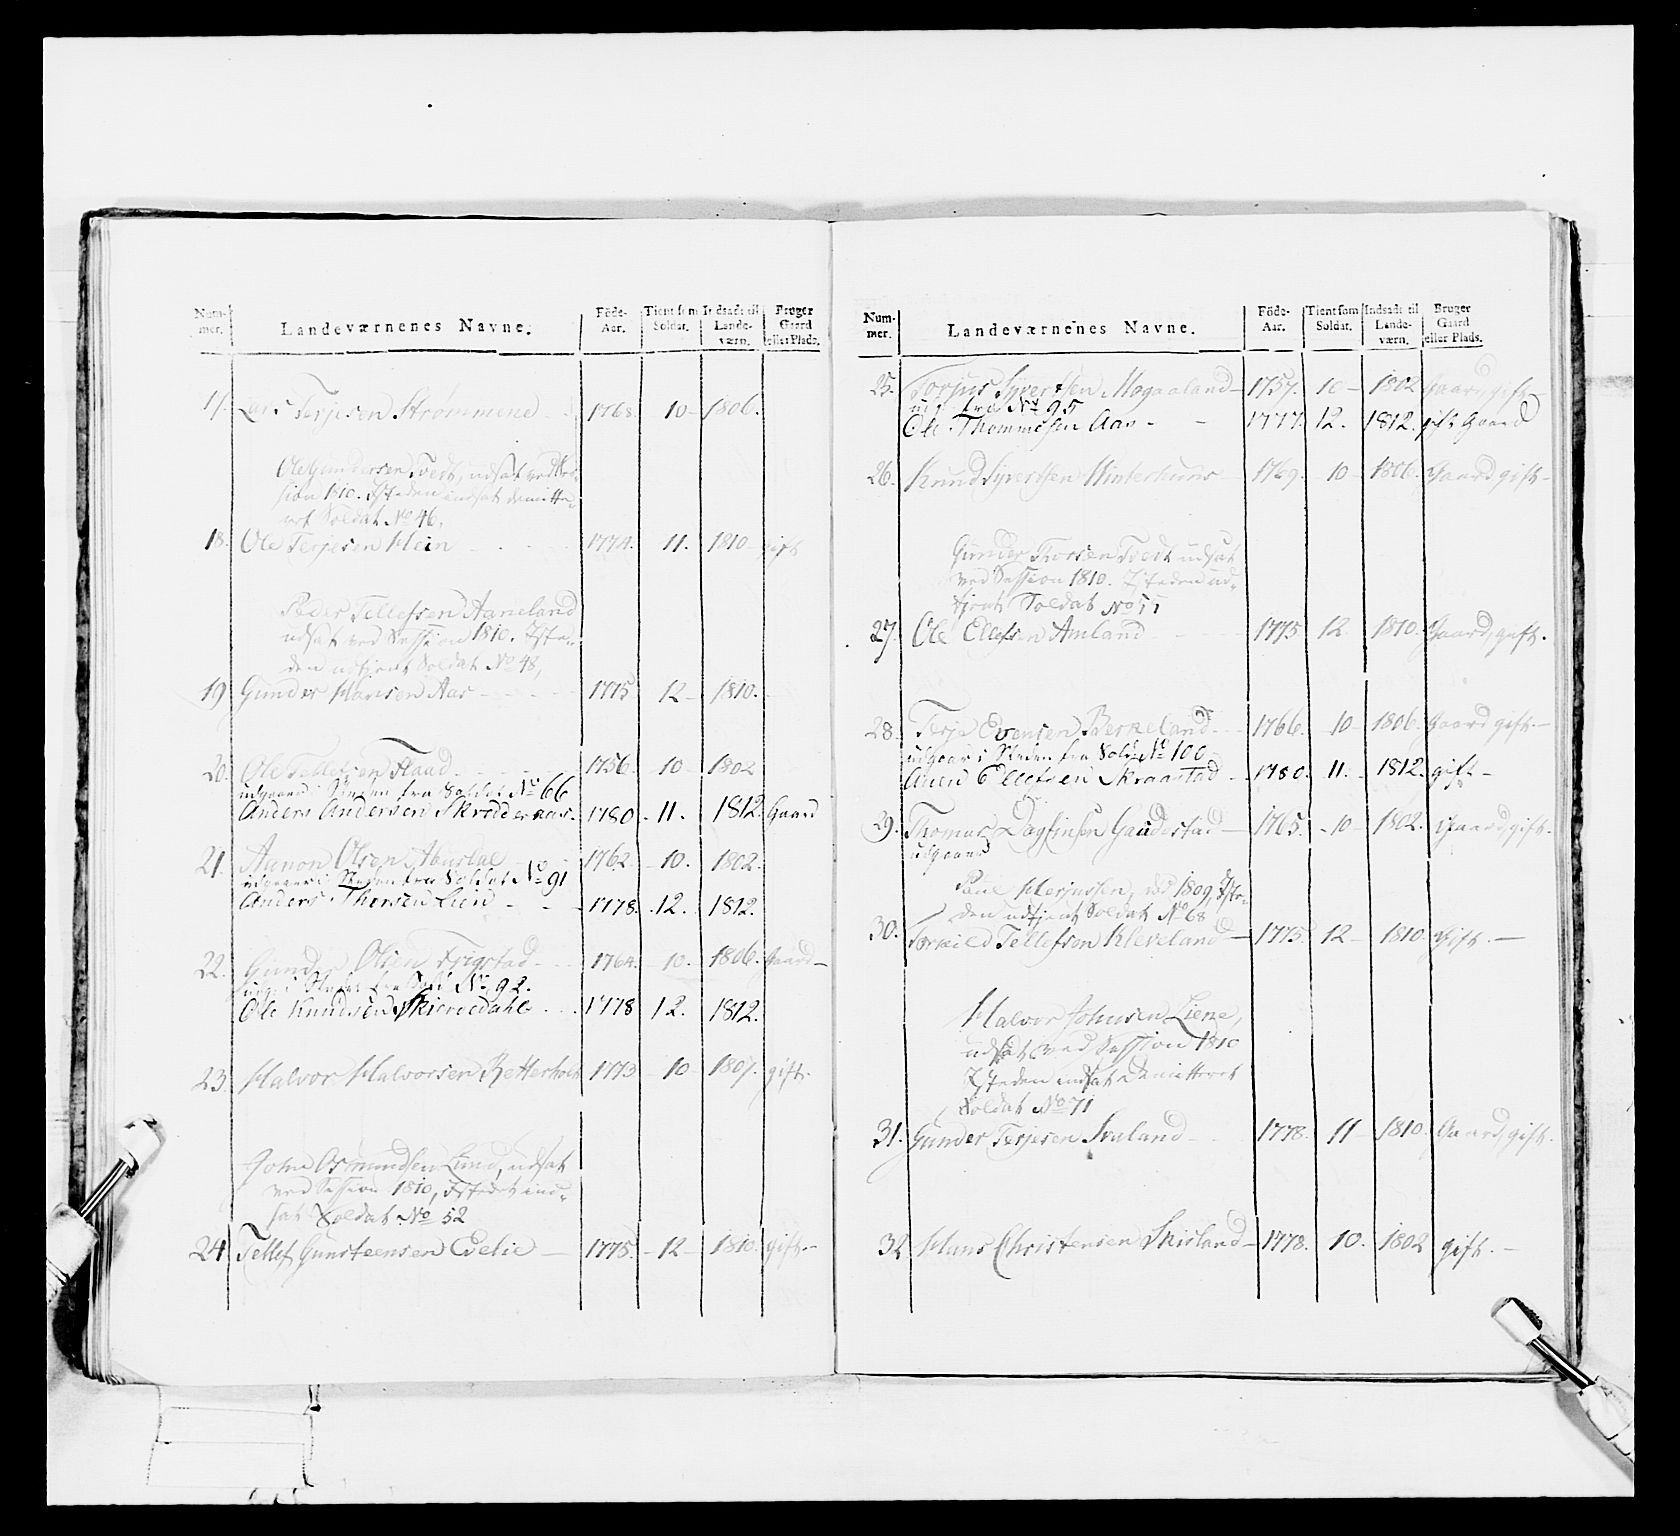 Num-
mer.
Landeværnenes Navne.
Föde-
Aar.
Tient som
Soldat.
Indsadt til
Lande-
værn.
Bruger
Gaard
eller Plads.
17. Lars Terjesen Strømmene - 1768. 10 - 1806.
Ole Gundersen Tvedt, udsat ved Ses-
sion 1810. Isteden indsat demitte-
ret Soldat No 46.
18. Ole Terjesen Hein - 1774. 11. 1810 gift
Peder Tellefsen Aaneland
udsat ved Session 1810. Iste-
den udtient Soldat No 48,
19 Gunder Hansen Aas - 1775 12 - 1810.
20. Ole Tellefsen Flaad - 1756. 10 - 1802
udgaaer i Steden fra Soldat No 66
Anders Andersen Skrødderaas. 1780 - 11. 1812. Gaard
21. Aanon Olsen 1762 10. 1802.
udgaaer i Steden fra Soldat No 91
Anders Thorsen Lien - - 1778. 12. 1812.
22. Gunder Olsen Frigstad - 1764. 10. 1806. Gaard -
udg. i Steden fra Sold No 92.
Ole Knudsen Skierdedahl . . 1778 12. 1812.
23. Halvor Halvorsen Retterholt 1773 10 1807. gift.
John Osmundsen Lund, udsat
ved Session 1810, Istedet ind-
sat Soldat No 52
24 Tellef Gunsteensen Evelie - 1775. - 12 - 1810. gift. -
Num-
mer.
Landeværnenes Navne.
Föde-
Aar.
Tient som
Soldat.
Indsadt til
Lande-
værn.
Bruger
Gaard
eller Plads.
25. Torjus Syvertsen Mogaaland - 1757. 10 - 1802 Gaard, gift
udg fra No 95
Ole Thommesen Aas - - 1777. 12. 1812. gift Gaard
26. Knud Syvertsen Hinterhuns - 1769. 10 - 1806. Gaard gift -
Gunder Thorsen Tvedt udsat
ved Session 1810. Isteden ud-
tient Soldat No 51
27. Ole Ellefsen Amland - 1775. 12 1810. Gaard, gift.
28. Terje Evensen Berkeland - 1766. 10 - 1806. Gaard gift. -
udgaar i Steden fra Sold No 100
Auen Ellefsen Skraastad - 1780. 11. 1812. gift -
29. Thomas Dagfinsen Gaudestad - 1765. - 10 - 1802. Gaard gift.
udgaaer
Herjussen, død 1809, Iste-
den udtient Soldat No 68
30. Torkild Tellefsen Kleveland - 1775. 12 - 1810. Gift. -
Halvor Johnsen Liene,
udsat ved Session 1810
Isteden indsat Demitteret
Soldat No 71
31. Gunder Terjesen Svaland - 1778. 11 - 1810. Gaard, gift.
32 Hans Christensen Skisland - 1778. 10. 1802 gift. -